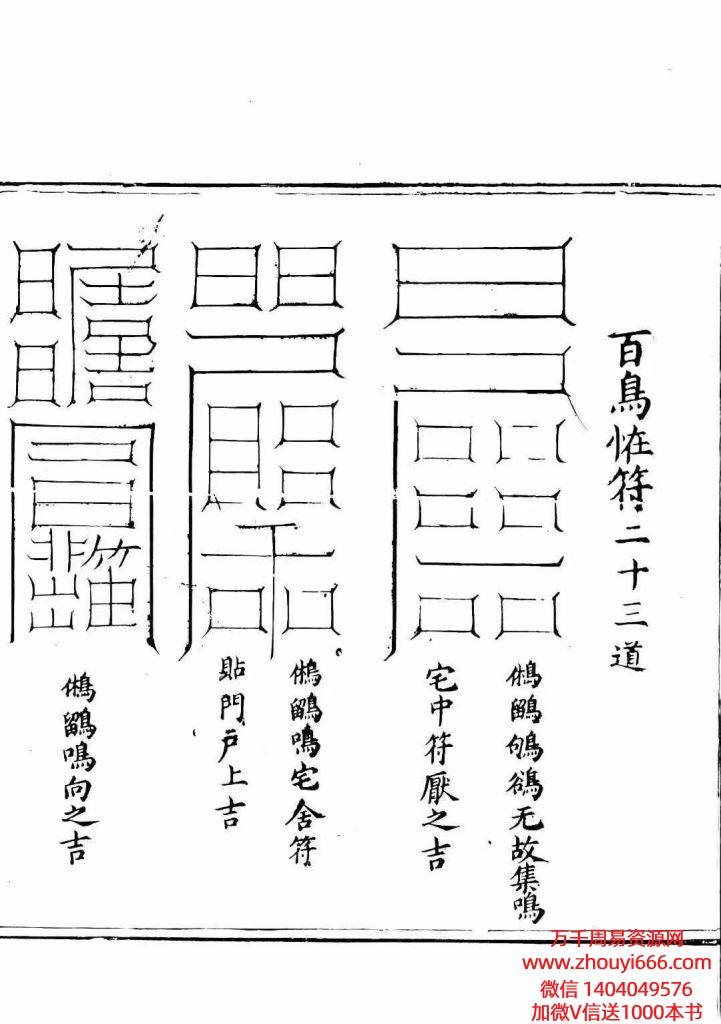 百鳥恠符二十三道
鵂鶹鴝鵒无故集鳴
宅中符厭之吉
鵂鶹鳴宅舍符
貼門戶上吉
鵂鶹鳴向之吉
万千周易资源网
www.zhouyi666.com
微信 1404049576
加微V信送1000本书